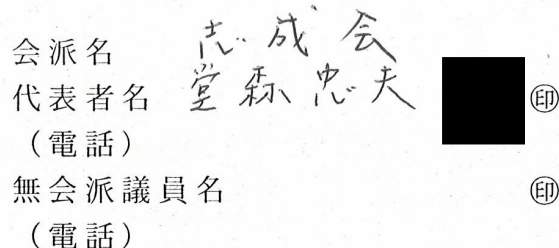 会派名 志成会
代表者名 堂森忠夫 ㊞
（電話）
無会派議員名 ㊞
（電話）